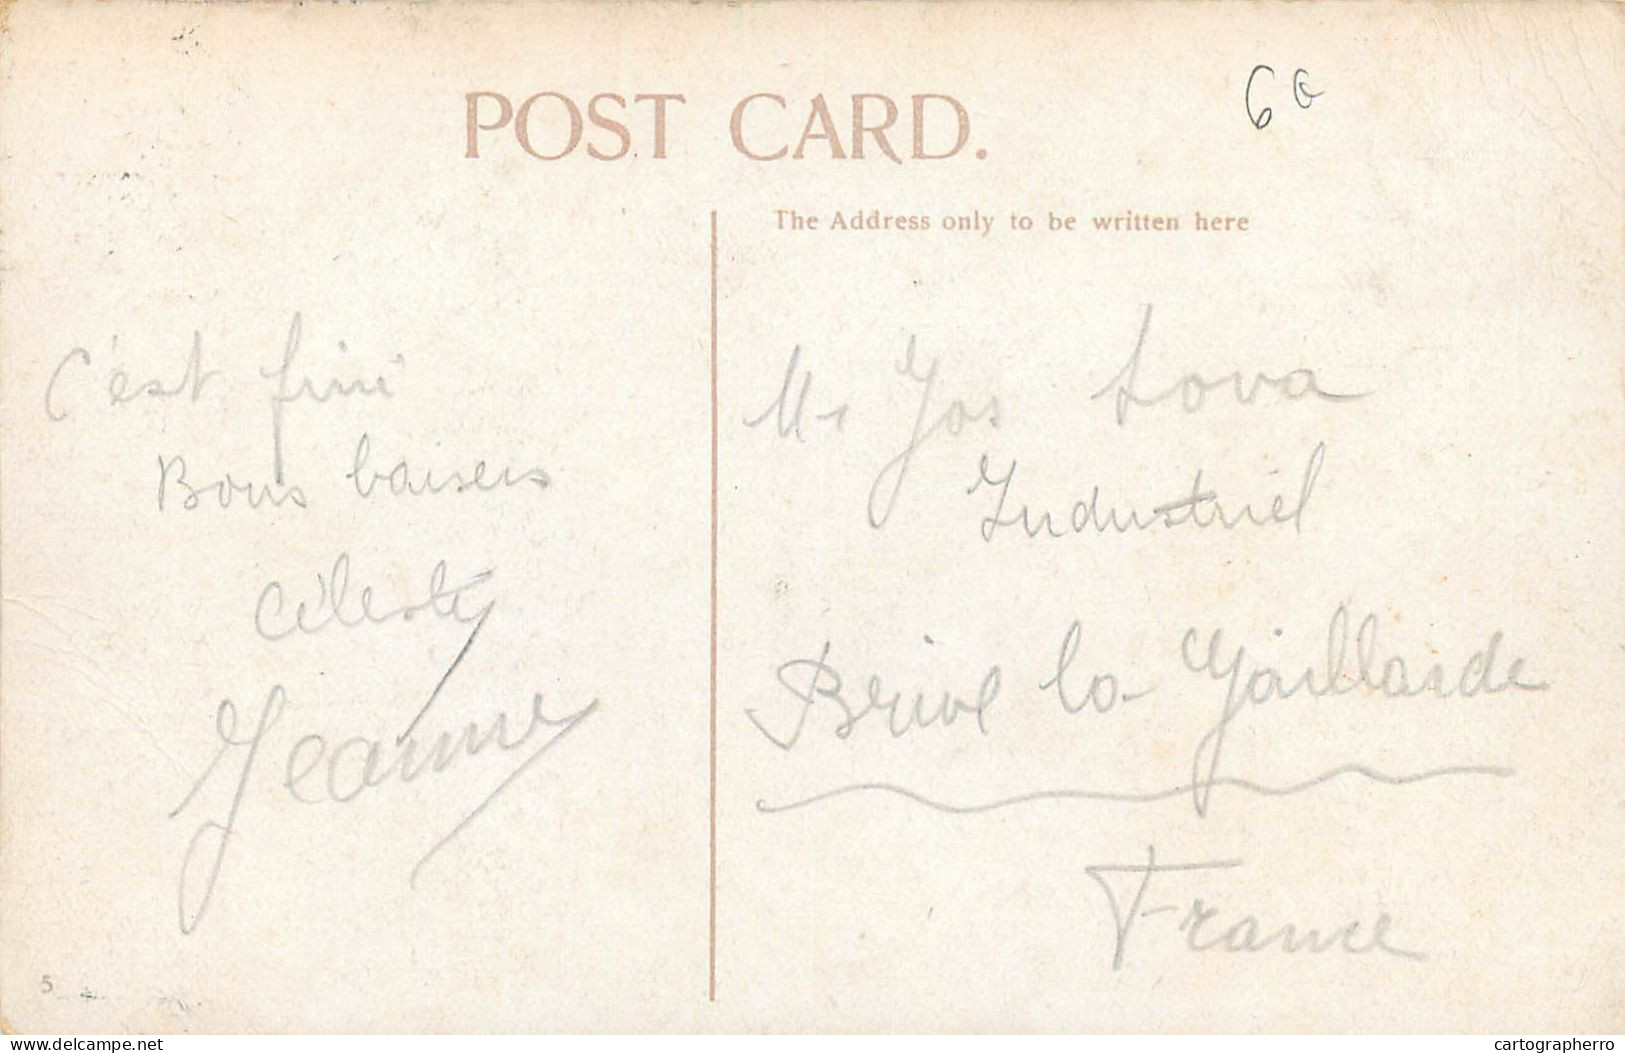 POST CARD.
6 G
The Address only to be written here
C'est fini
Bons baisers
Céleste
Jeanne
Mr Jos Lova
Industriel
Brive la Gaillarde
France
5
delcampe.net
cartographerro